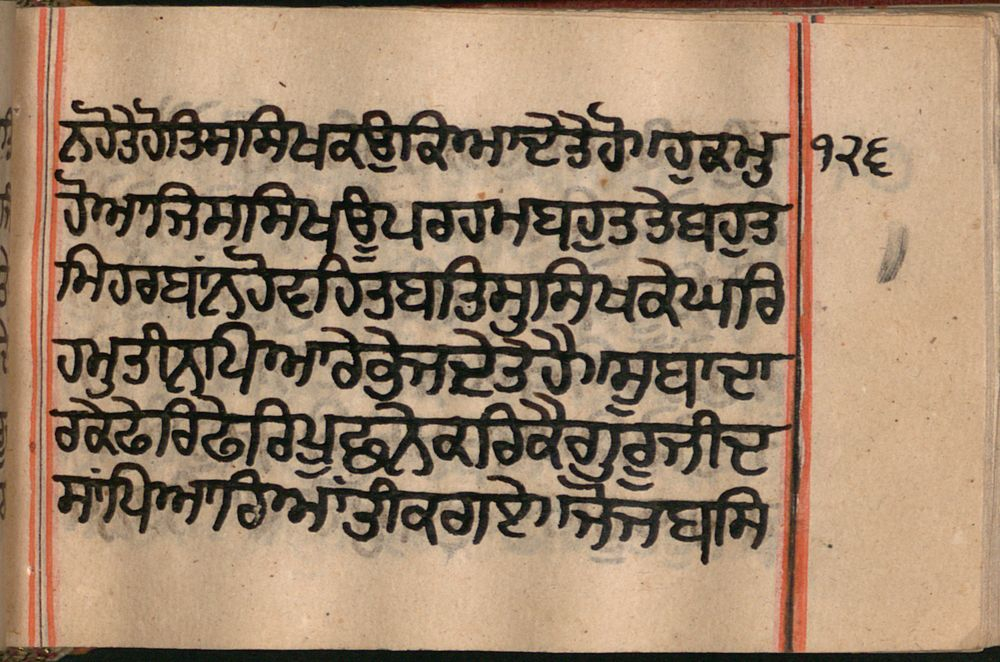 ਨਹੋਤੈਹੋਤਿਸਸਿਖਕਉਕਿਆਦੇਤੇਹੋ।ਹੁਕਮੁ ੧੨੬
ਹੋਆਜਿਸਸਿਖਊਪਰਹਮਬਹੁਤਤੇਬਹੁਤ
ਮਿਹਰਬਾਂਨਹੋਵਹਿਤਬਤਿਸੁਸਿਖਕੇਘਰਿ
ਹਮੁਤੀਨਪਿਆਰੇਕੁਜਦੇਤੇਹੈ।ਸੂਬਾਦਾ
ਰਕੋਫੇਰਿਫੇਰਿਪੁਛਨੇਕਰਿਕੈਗੁਰੂਜੀਦ
ਸਾਂਪਿਆਰਿਆਂਤੀਕਗਏ।ਜੋਜਬਸਿ